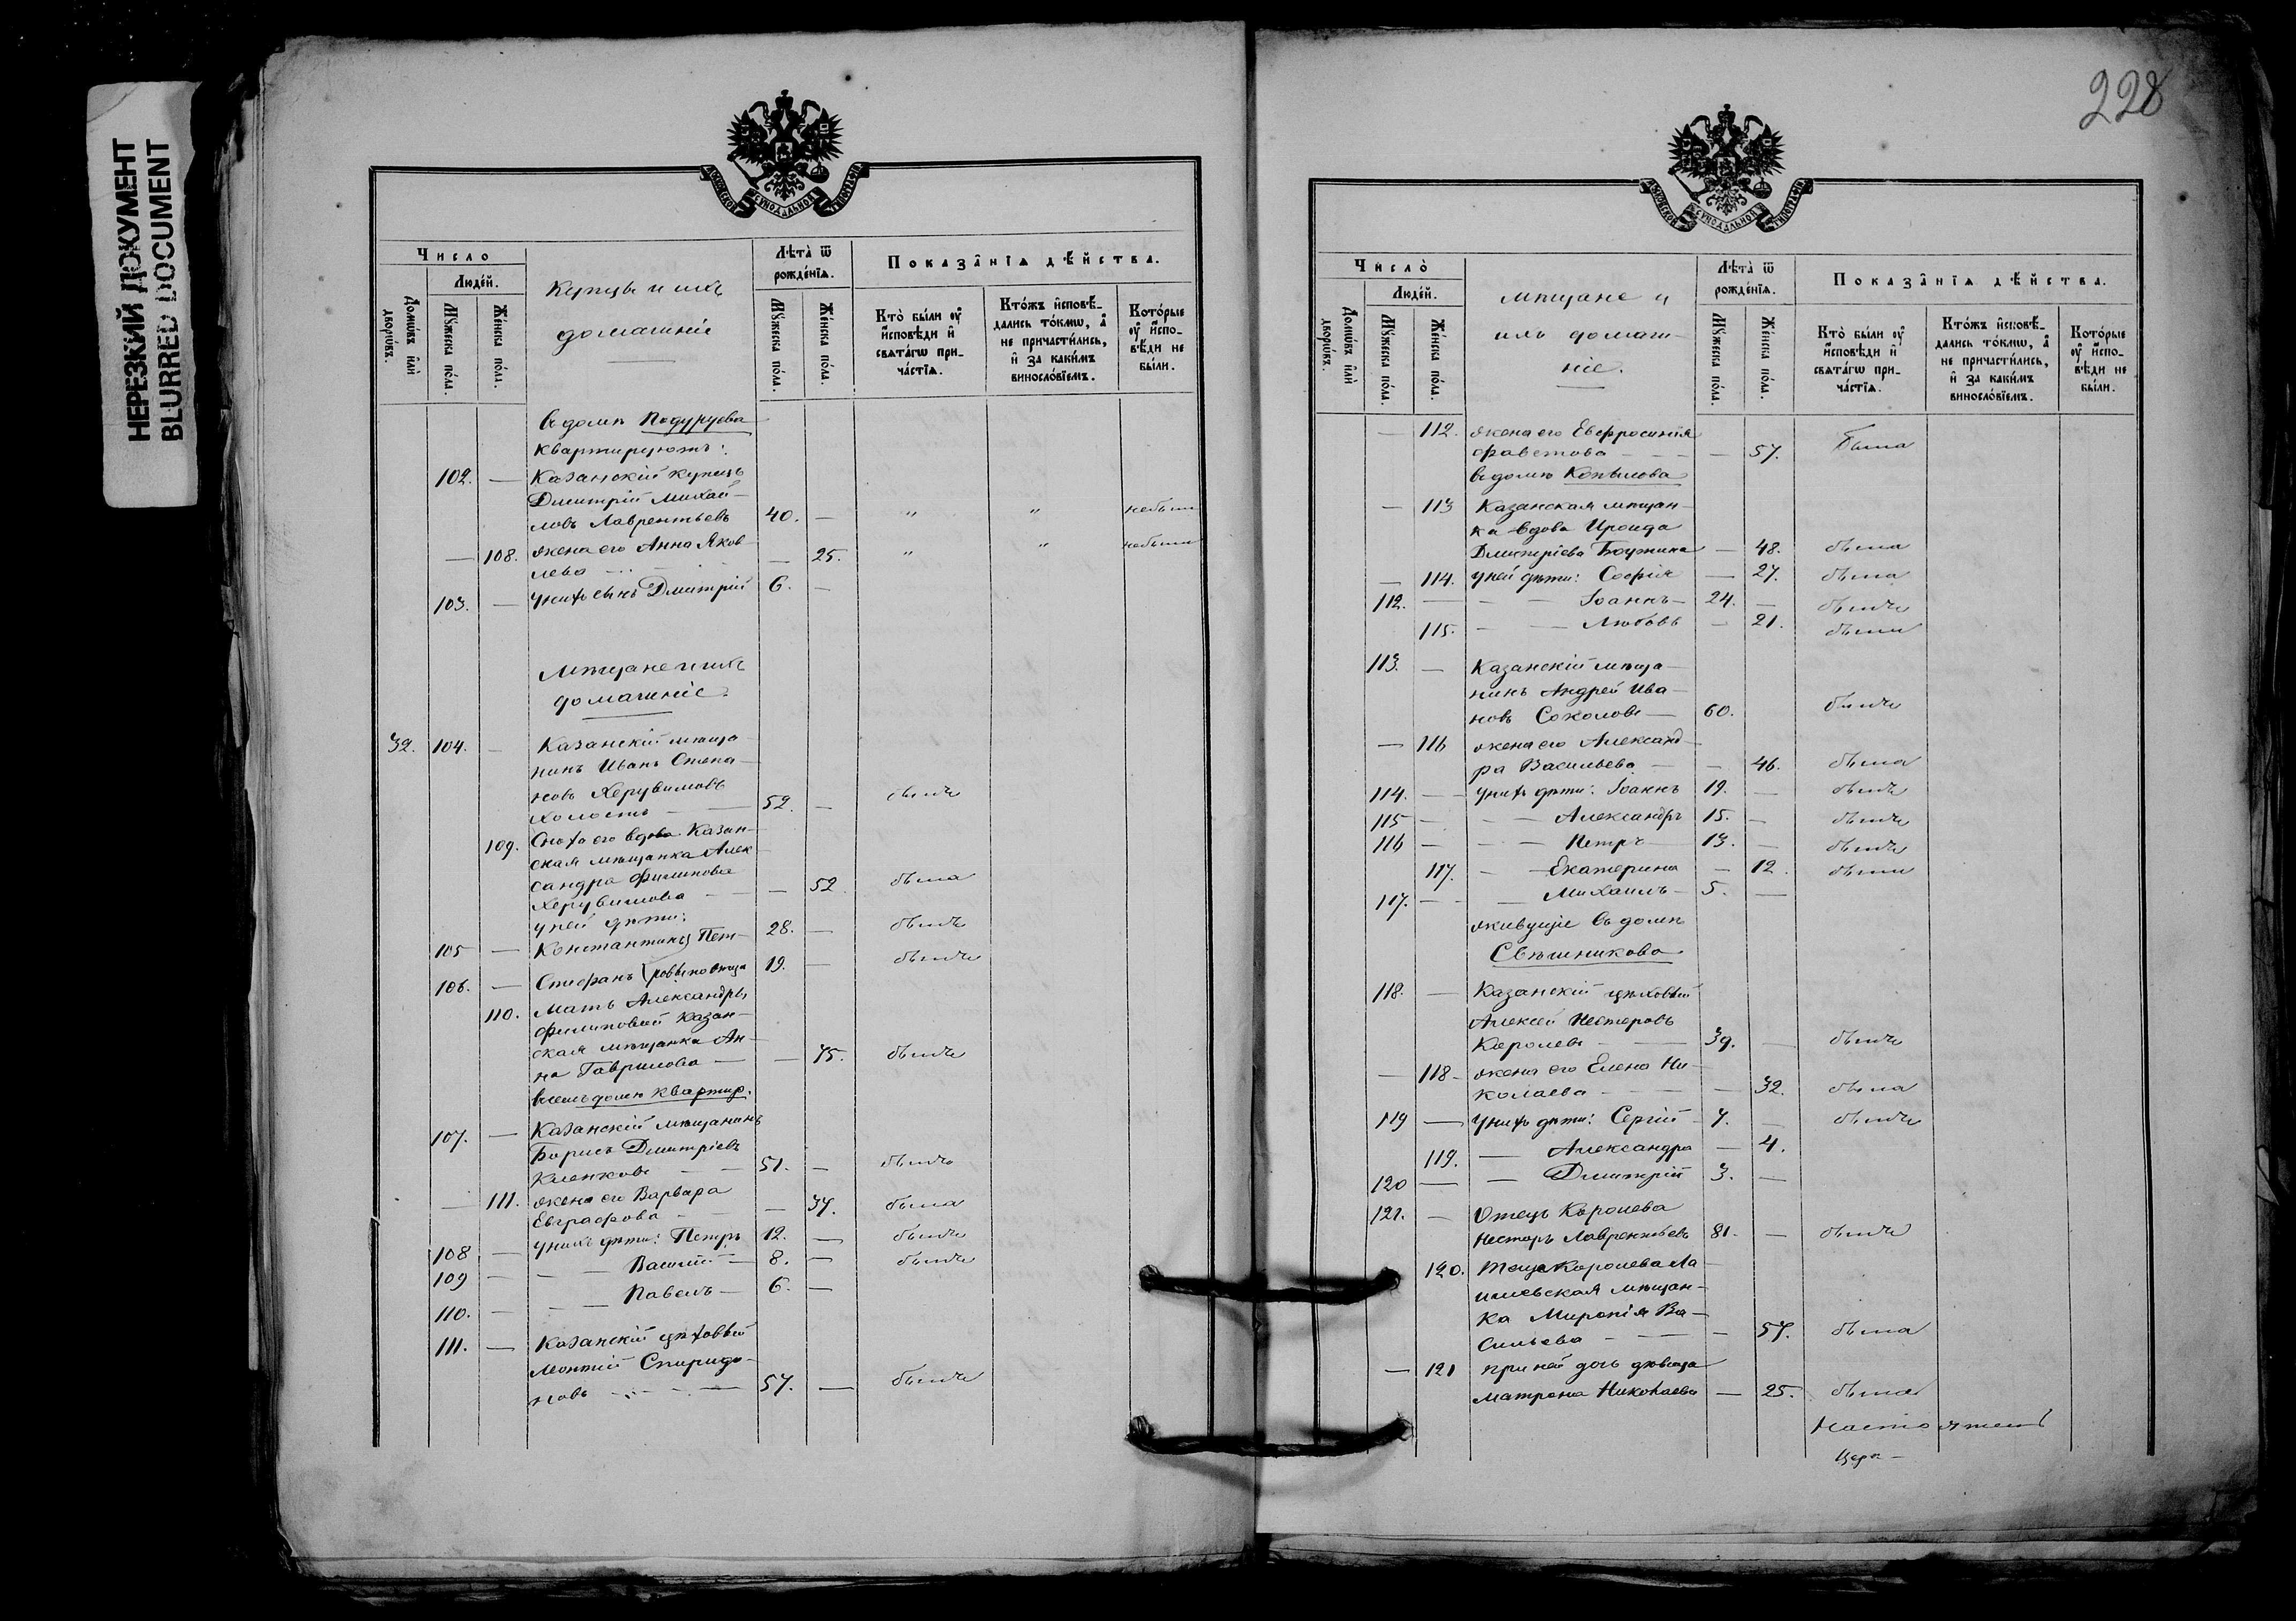 НЕРЕЗКИЙ ДОКУМЕНТ
BLURRED DOCUMENT
МОСКОВСКОЙ СѴНОДАЛЬНОЙ ТИПОГРАФІИ
Число
Людéй.
Домѡ́въ и҆лѝ дворѡ́въ.
Мꙋ́жеска по́ла.
Же́нска по́ла.
Купцы и ихъ
домашніе
Лѣ̑та ѿ рожде́нїѧ.
Мꙋ́жеска по́ла.
Же́нска по́ла.
Показа̂нїѧ дѣ́йства.
Кто̀ бы́ли ᲂу҆
и҆сповѣди и҆
свѧта́гѡ при-
ча́стїѧ.
Кто́жъ и҆сповѣ́-
дались то́кмѡ, а҆
не причасти́лись,
и҆ за каки́мъ
винослóвїемъ.
Кото́рые
ᲂу҆ и҆спо-
вѣди не
бы́ли.
въ домѣ Подуруева
квартируютъ:
102. — Казанскій купецъ
Дмитрій Михай-
ловъ Лаврентьевъ 40. — " " небылъ
— 108. жена его Анна Яков-
лева — 25. " " небыла
103. — У нихъ сынъ Дмитрій 6. —
Мѣщане и ихъ
домашніе.
32. 104. — Казанскій мѣща-
нинъ Иванъ Степа-
новъ Херувимовъ
холостъ — 52. — былъ
109. Сноха его вдова Казан-
ская мѣщанка Алек-
сандра Филипова
Херувимова — — 52. была
у ней дѣти:
105 — Константинъ Пет- 28. — былъ
106. — Стефанъ ровы по отцу 19. — былъ
110. Мать Александры
Филиповой Казан-
ская мѣщанка Ан-
на Гаврилова — — 75. былъ
въ семъ домѣ квартир.
107. — Казанскій мѣщанинъ
Борисъ Дмитріевъ
Кленковъ — 51. — былъ
— 111. жена его Варвара
Евграфова — — 37. была
108 — У нихъ дѣти: Петръ 12. — былъ
109 — — Василій — 8. — былъ
110. — — Павелъ — 6. —
111. — Казанскій цѣховый
Леонтій Спиридо-
новъ — 57. — былъ
228
МОСКОВСКОЙ СѴНОДАЛЬНОЙ ТИПОГРАФІИ
Число̀
Людéй.
Домѡ́въ и҆лѝ дворѡ́въ.
Мꙋ́жеска по́ла.
Же́нска по́ла.
мѣщане и
ихъ домаш-
ніе.
Лѣ̑та ѿ рожде́нїѧ.
Мꙋ́жеска по́ла.
Же́нска по́ла.
Показа̂нїѧ дѣ́йства.
Кто̀ бы́ли ᲂу҆
и҆сповѣди и҆
свѧта́гѡ при-
ча́стїѧ.
Кто́жъ и҆сповѣ́-
дались то́кмѡ, а҆
не причасти́лись,
и҆ за каки́мъ
винослóвїемъ.
Кото́рые
ᲂу҆ и҆спо-
вѣди не
бы́ли.
— 112. жена его Евфросинія
Фаветова — — 57. Была
въ домѣ Копылова
— 113 Казанская мѣщан-
ка вдова Ироида
Дмитріева — 48. была
— 114. у ней дѣти: Софія — 27. была
112. — — Іоаннъ — 24. — былъ
115. — — Любовь — 21. была
113. — Казанскій мѣща-
нинъ Андрей Ива-
новъ Соколовъ — 60. былъ
— 116 жена его Александ-
ра Васильева — — 46. была
114. — У нихъ дѣти: Іоаннъ 19. — былъ
115 — — Александръ 15. — былъ
116 — — Петръ 13. — былъ
117. — Екатерина — 12. была
117. — — Михаилъ — 5. —
живущіе въ домѣ
Свѣшникова
118. — Казанскій цѣховый
Алексѣй Несторовъ
Королевъ — 39. — былъ
— 118 — жена его Елена Ни-
колаева — — 32. была
119 — У нихъ дѣти: Сергій — 7. — былъ
119. — Александра — 4.
120 — — Дмитрій 3. —
121. — Отецъ Королева
Несторъ Лаврентьевъ 81. — былъ
120. Теща Королева Ла-
ишевская мѣщан-
ка Миропія Ва-
сильева — — 57. была
— 121 при ней дочь дѣвица
Матрона Николаева — 25. была